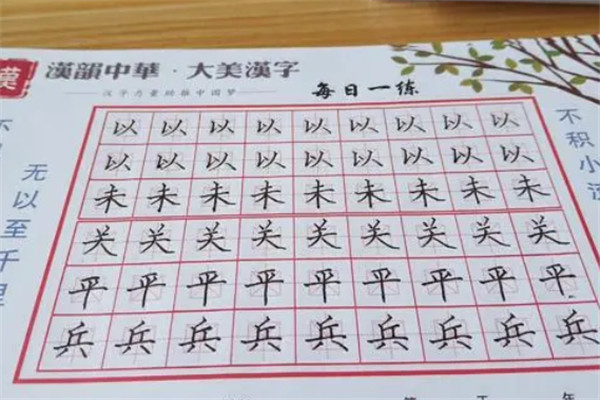 漢
漢韻中華·大美漢字
汉字力量助推中国梦
每日一练
不积小流
无以至千里
以以以以以以以以以
以以以以以以以以以
未未未未未未未未未
关关关关关关关关关
平平平平平平平平平
兵兵兵兵兵兵兵兵兵